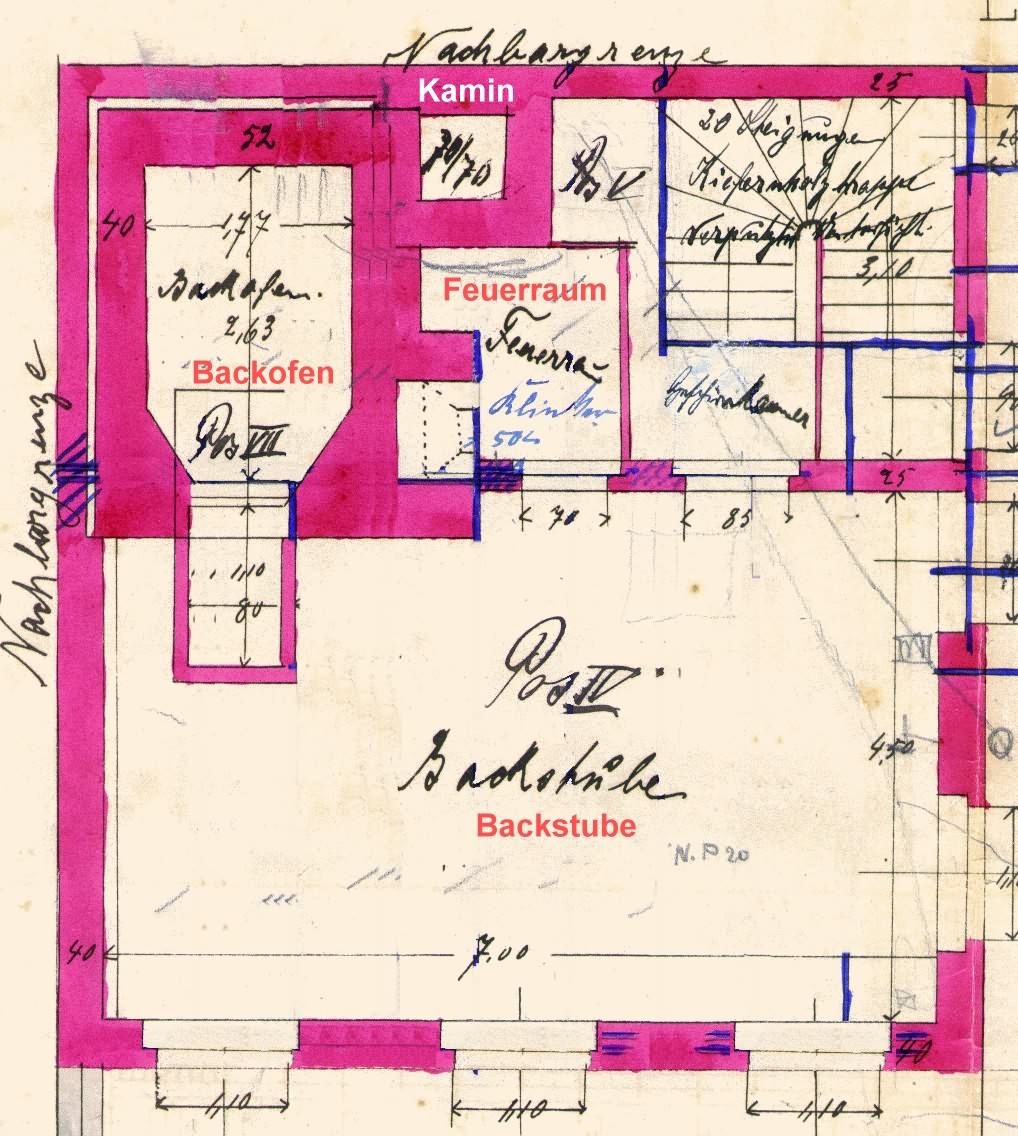 Nachbargrenze
Kamin
25
52
70/70
Pos V
20 Steigungen
Kiefernholztreppe
Verputzte Untersicht.
3,10
40
1,77
Backofen.
2,63
Feuerraum
Feuerra
Backofen
Klinker
50
Geschirrkammer
Pos VII
Nachbargrenze
25
70
85
1,10
80
Pos IV
4,50
Backstube
Backstube
N.P 20
40
7.00
40
1,10
1,10
1,10